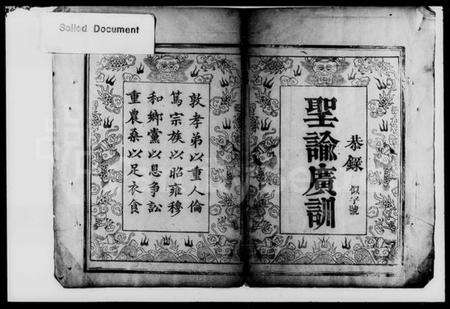 Soiled Document
恭錄
聖諭廣訓
敦孝弟以重人倫
篤宗族以昭雍穆
和鄉黨以息爭訟
重農桑以足衣食